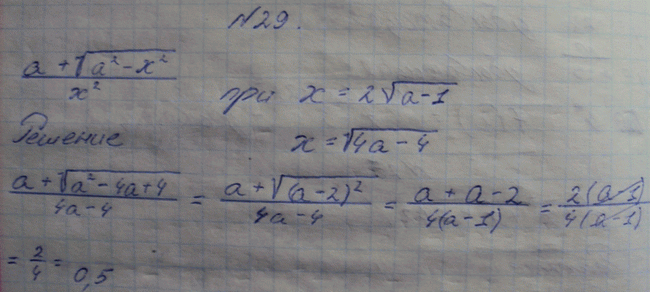 №29.
(a + √(a² − x²)) / x² при x = 2√(a−1)
Решение x = √(4a − 4)
(a + √(a² − 4a + 4)) / (4a − 4) = (a + √((a − 2)²)) / (4a − 4) = (a + a − 2) / (4(a − 1)) = (2(a − 1)) / (4(a − 1))
= 2/4 = 0,5